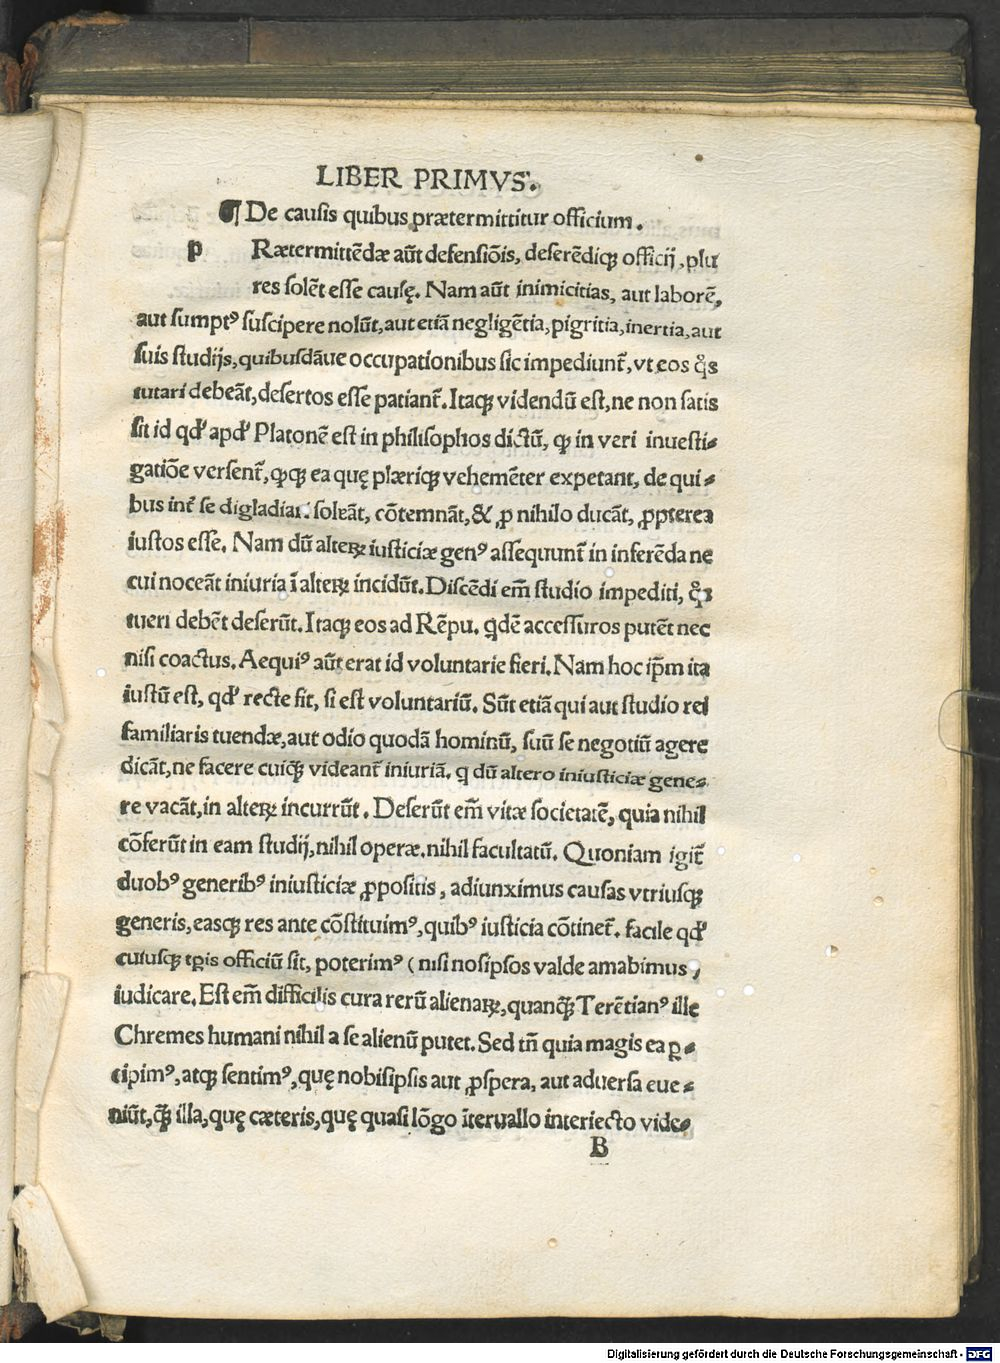 LIBER PRIMVS.
¶ De causis quibus prætermittitur officium.
p Rætermittēdæ aūt defensiōis, deserēdiqꝫ officij, plu
res solēt esse causę. Nam aūt inimicitias, aut laborē,
aut sumptꝰ suscipere nolūt, aut etiā negligētia, pigritia, inertia, aut
suis studijs, quibusdāue occupationibus sic impediunt᷑, vt eos qͦs
tutari debeāt, desertos esse patiant᷑. Itaqꝫ videndū est, ne non satis
sit id qđ apđ Platonē est in philisophos dictū, ꝙ in veri inuesti⸗
gatiōe versent᷑, ꝙqꝫ ea quę plæriqꝫ vehemēter expetant, de qui⸗
bus int᷑ se digladiari soleāt, cōtemnāt, & ꝓ nihilo ducāt, ꝓpterea
iustos esse. Nam dū alterꝝ iusticiæ genꝰ assequunt᷑ in inferēda ne
cui noceāt iniuria ī alterꝝ incidūt. Discēdi em̄ studio impediti, qͦs
tueri debēt deserūt. Itaqꝫ eos ad Rēpu. qdē accessuros putēt nec
nisi coactus. Aequiꝰ aūt erat id voluntarie fieri. Nam hoc ip̄m ita
iustū est, qđ recte fit, si est voluntariū. Sūt etiā qui aut studio rei
familiaris tuendæ, aut odio quodā hominū, suū se negotiū agere
dicāt, ne facere cuiqꝫ̄ videant᷑ iniuriā. q dū altero iniusticiæ gene⸗
re vacāt, in alterꝝ incurrūt. Deserūt em̄ vitæ societatē, quia nihil
cōferūt in eam studij, nihil operæ. nihil facultatū. Quoniam igit᷑
duobꝰ generibꝰ iniusticiæ ꝓpositis, adiunximus causas vtriusqꝫ
generis, easqꝫ res ante cōstituimꝰ, quibꝰ iusticia cōtinet᷑. facile qđ
cuiusqꝫ tꝑis officiū sit, poterimꝰ (nisi nosipsos valde amabimus)
iudicare. Est em̄ difficilis cura rerū alienaꝝ, quanqꝫ̄ Terētianꝰ ille
Chremes humani nihil a se alienū putet. Sed tn̄ quia magis ea ꝑ⸗
cipimꝰ, atqꝫ sentimꝰ, quę nobisipsis aut ꝓspera, aut aduersa eue⸗
niūt, qꝫ̄ illa, quę cæteris, quę quasi lōgo īteruallo interiecto vide⸗
B
Digitalisierung gefördert durch die Deutsche Forschungsgemeinschaft - DFG